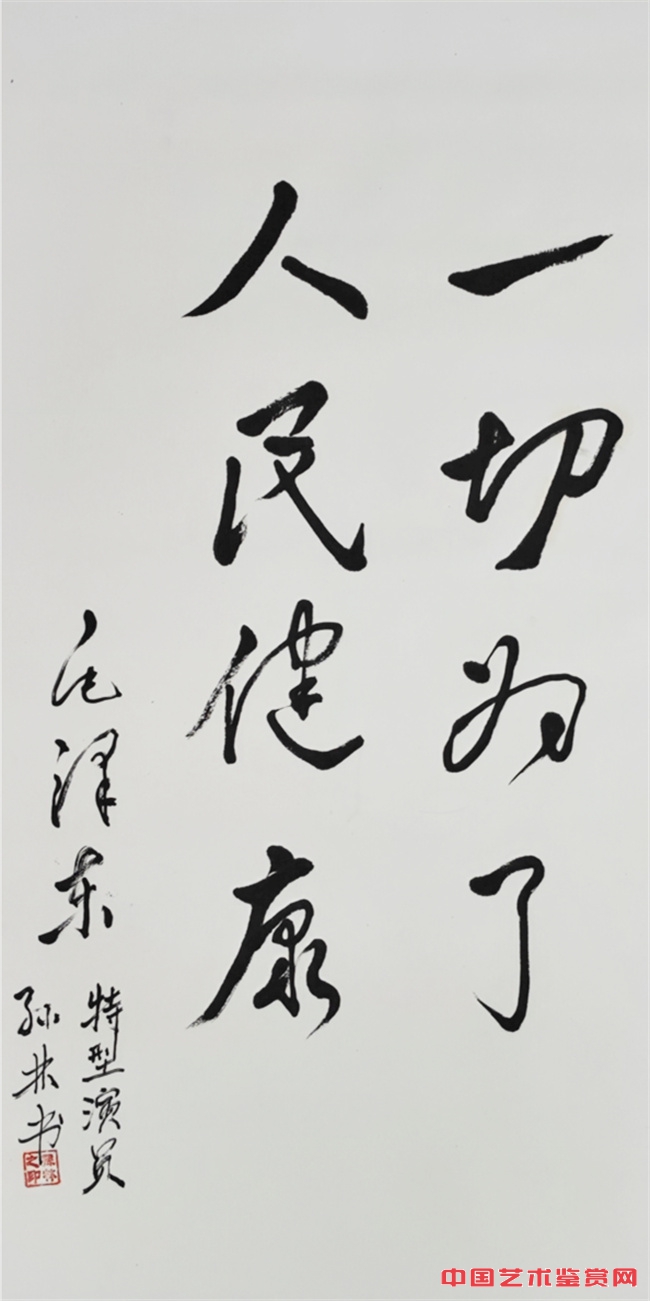 一切为了
人民健康
毛泽东
特型演员
孙林书
中国艺术鉴赏网